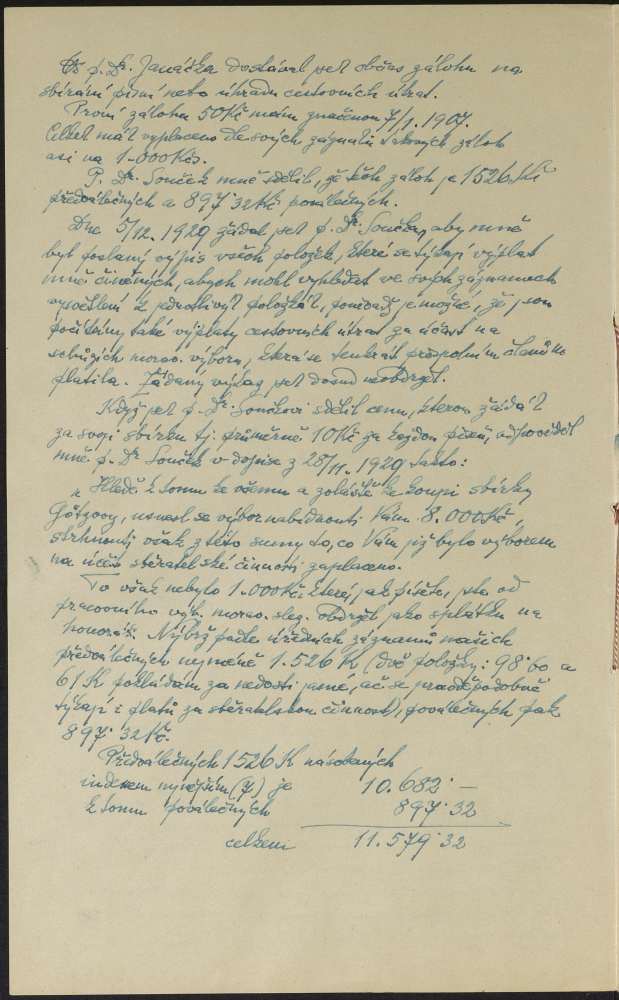 Od p. Dr. Janáčka dostával jsem občas zálohu na
sbírání písní nebo úhradu cestovních útrat.
První zálohu 50 Kč mám značenou 7/1. 1907.
Celkem mám vyplaceno dle svých záznamů takových záloh
asi na 1.000 Kčs.
P. Dr. Souček mně sdělil, že těch záloh je 1526 Kč
předválečných a 897·32 Kč poválečných.
Dne 5/12. 1929 žádal jsem p. Dr. Součka, aby mně
byl poslaný výpis všech položek, které se týkají výplat
mně činěných, abych mohl vyhledat ve svých záznamech
vysvětlení k jednotlivým položkám, poněvadž je možné, že jsou
počítány také výplaty cestovních útrat za účast na
schůzích morav. výboru, která se tenkrát přespolním členům
platila. Žádaný výpis jsem dosud neobdržel.
Když jsem p. Dr. Součkovi sdělil cenu, kterou žádám
za svoji sbírku tj. průměrně 10 Kč za každou píseň, odpověděl
mně p. Dr Souček v dopise z 28/11. 1929 takto:
„Hledě k tomu ke všemu a zvláště ke koupi sbírky
Götzovy, usnesl se výbor nabídnouti Vám 8.000 Kč,
strhnouti však z této sumy to, co Vám již bylo výborem
na účet sběratelské činnosti zaplaceno.
To však nebylo 1.000 Kč, které, jak píšete, jste od
pracovního výb. morav. sles. obdržel jako splátku na
honorář. Nýbrž podle úředních záznamů našich
předválečných nejméně 1.526 K (dvě položky: 98·60 a
61 K pokládám za nedosti jasné, ač se pravděpodobně
týkají platů za sběratelskou činnost), poválečných pak
897·32 Kč.
Předválečných 1526 K násobených
indexem nynějším (7) je 10.682·—
k tomu poválečných 897·32
celkem 11.579·32